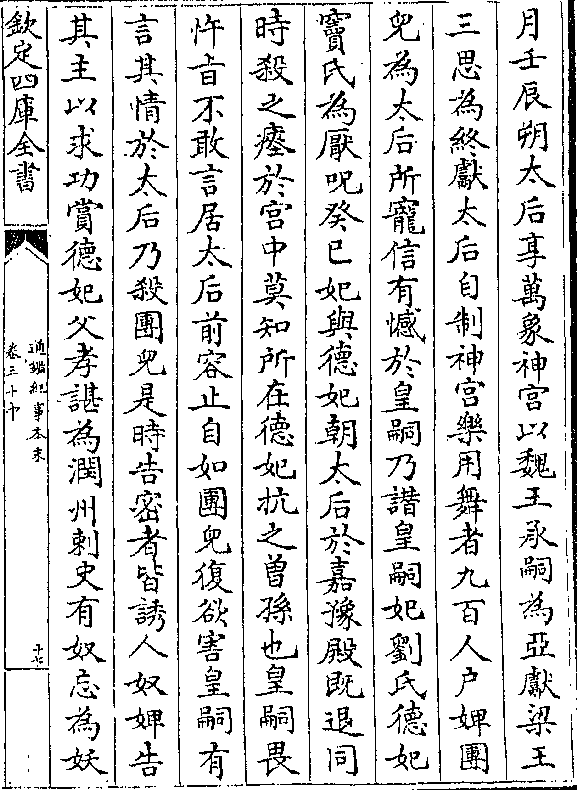 月壬辰朔太后享萬象神宫以魏王承嗣為亞獻梁王
三思為終獻太后自制神宫樂用舞者九百人户婢團
兒為太后所寵信有憾於皇嗣乃譖皇嗣妃劉氏德妃
竇氏為厭呪癸巳妃與德妃朝太后於嘉豫殿既退同
時殺之瘞於宫中莫知所在德妃抗之曽孫也皇嗣畏
忤旨不敢言居太后前容止自如團兒復欲害皇嗣有
言其情於太后乃殺團兒是時告密者皆誘人奴婢告
其主以求功賞德妃父孝諶為潤州刺史有奴忘為妖
欽定四庫全書
通鑑紀事本末
卷三十中
十七